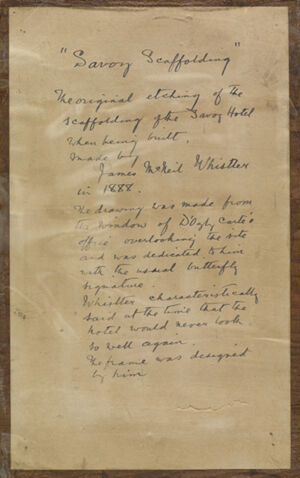 "Savoy Scaffolding"
The original etching of the
scaffolding of the Savoy Hotel
when being built,
Made by
James McNeil Whistler
in 1888.
The drawing was made from
the window of D'Oyly Carte's
office overlooking the site
and was dedicated to him
with the usual butterfly
signature.
Whistler characteristically
said at the time that the
hotel would never look
so well again.
The frame was designed
by him